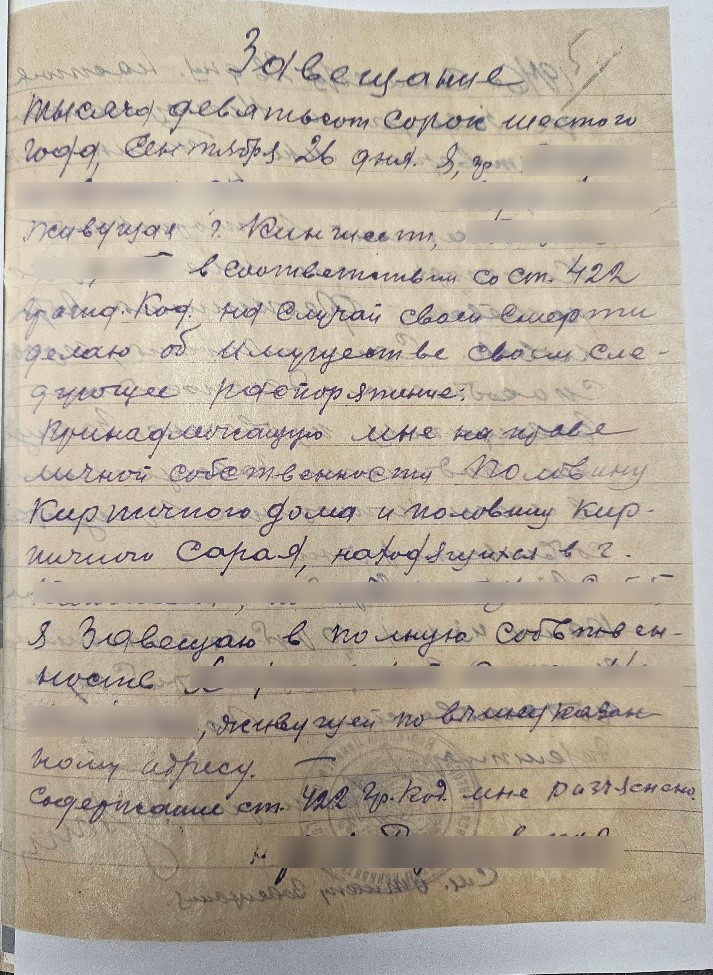 Завещание
тысяча девятьсот сорок шестого
года, сентября 26 дня. Я, гр.
живущая г. Кинешма,
в соответствии со ст. 422
гражд. Код. на случай своей смерти
делаю об имуществе своем сле-
дующее распоряжение:
Принадлежащую мне на праве
личной собственности половину
Кирпичного дома и половину кир-
пичного сарая, находящихся в г.
я завещаю в полную собствен-
ность
, живущей по вышеуказан-
ному адресу. —
Содержание ст. 422 Гр. Код. мне разъяснено.